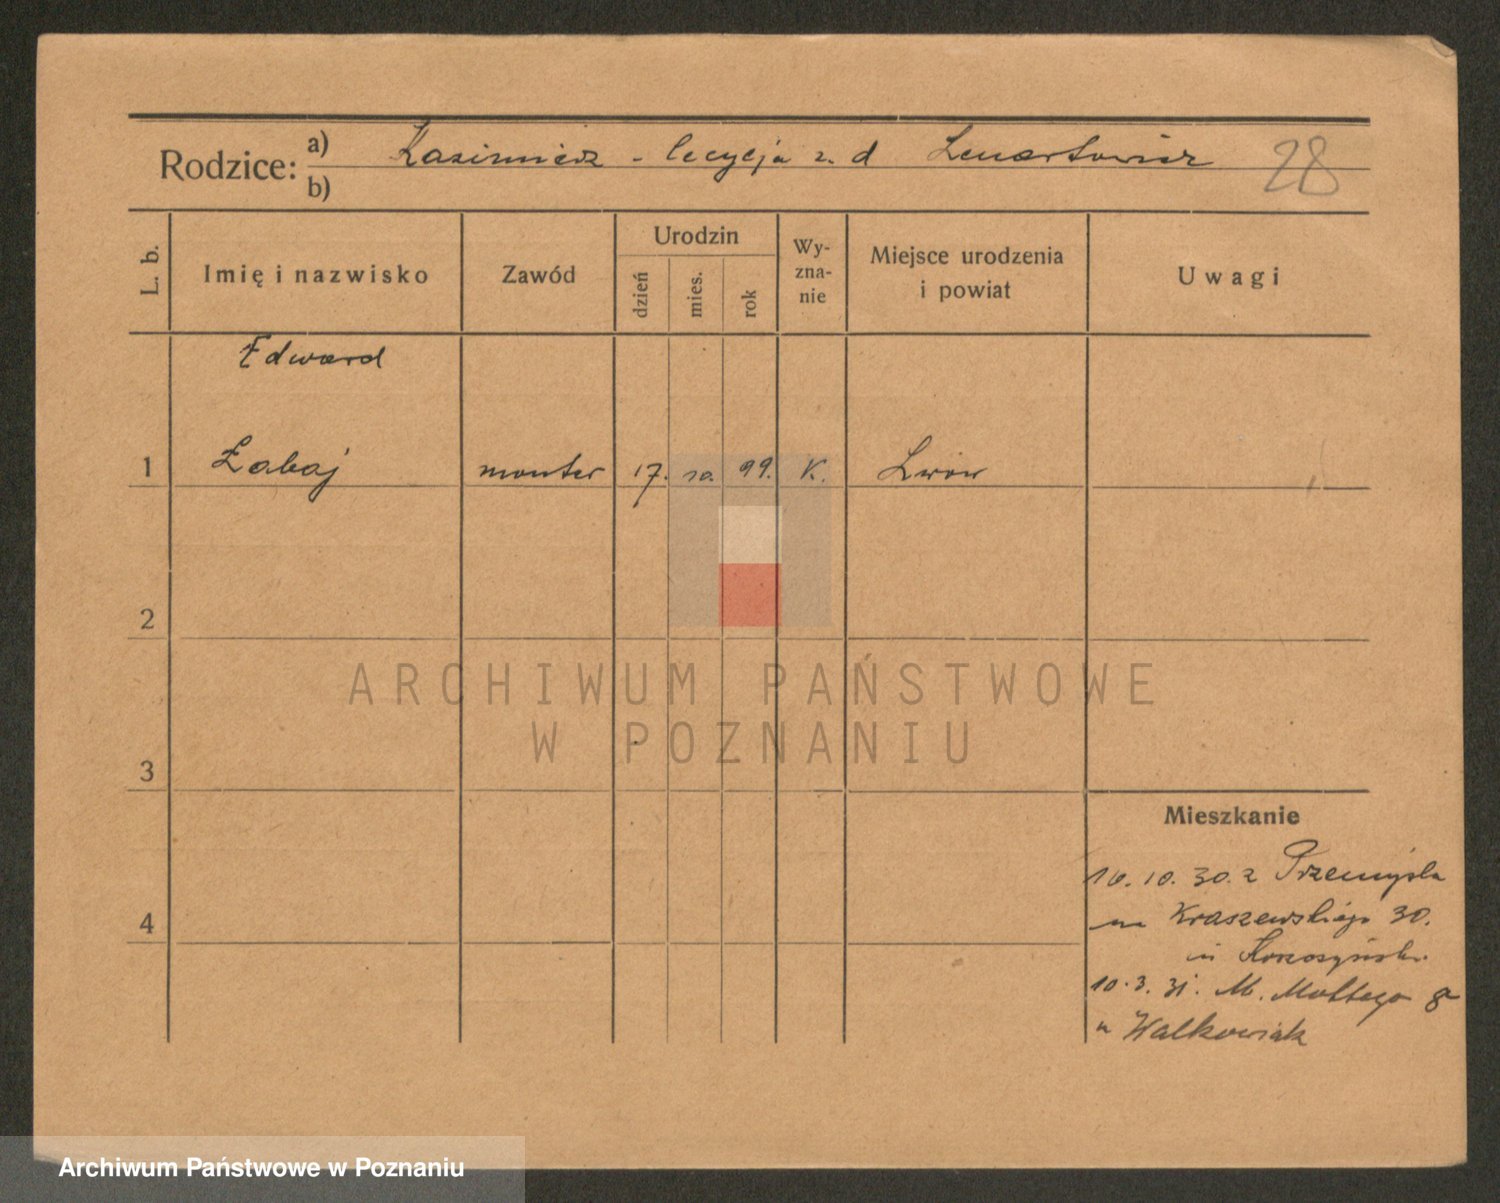 Rodzice: a) Kazimierz - Lucyja z. d Lenartowicz 28
b)
L. b. Imię i nazwisko Zawód Urodzin dzień mies. rok Wy-zna-nie Miejsce urodzenia i powiat Uwagi
Edward
1 Łabaj monter 17. 10. 99. K. Lwów
2
ARCHIWUM PAŃSTWOWE
W POZNANIU
3
Mieszkanie
16. 10. 30. z Przemyśla
4 Kraszewskiego 30.
10. 3. 31. M. Moltego 8a
u Walkowiak
Archiwum Państwowe w Poznaniu